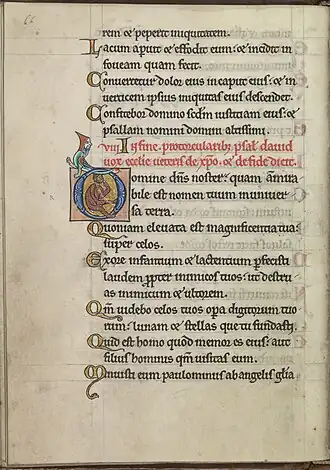 rem & peperit iniquitatem.
Lacum aperuit & effodit eum: & incidit in
foveam quam fecit.
Convertetur dolor eius in caput eius: & in
verticem ipsius iniquitas eius descendet.
Confitebor domino scdm iusticiam eius: &
psallam nomini domini altissimi.
viij In fine. pro torcularibus psal' david
vox ecclie de xpo. & de fide
Domine dns noster: quam admira
bile est nomen tuum in univer
sa terra.
Quoniam elevata est magnificentia tua:
super celos.
Ex ore infantium & lactentium pfecisti
laudem ppter inimicos tuos: ut destru
as inimicum & ultorem.
Qm videbo celos tuos opa digitorum tuo
rum: lunam & stellas que tu fundasti.
Quid est homo quod memor es eius: aut
filius hominis qm visitas eum.
Minuisti eum paulominus ab angelis glia